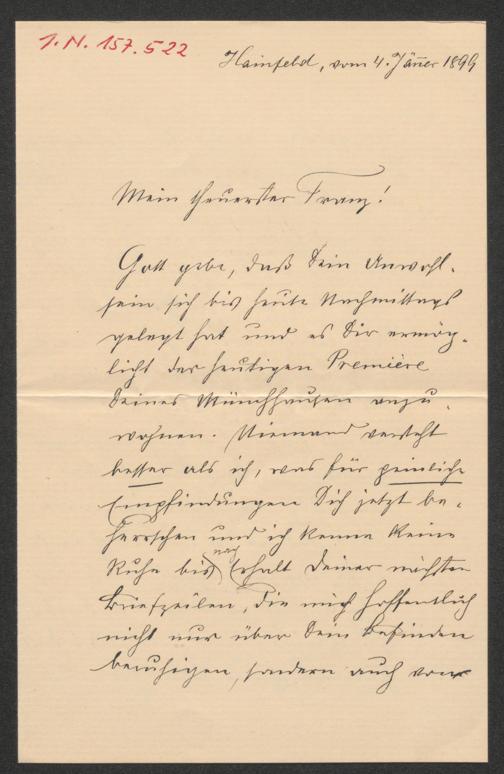 I. N. 157.522
Hainfeld, vom 4. Jänner 1899
Mein theuerster Franz!
Gott gebe, daß Dein Unwohl-
sein sich bis heute Nachmittags
gelegt hat und es Dir ermög-
licht der heutigen Première
Deines Münchhausen anzu-
wohnen. Niemand versteht
besser als ich, was für peinliche
Empfindungen Dich jetzt be-
herrschen und ich kenne keine
Ruhe bis nach Erhalt Deiner nächsten
Briefzeilen, die mich hoffentlich
nicht nur über Dein Befinden
beruhigen, sondern auch vom